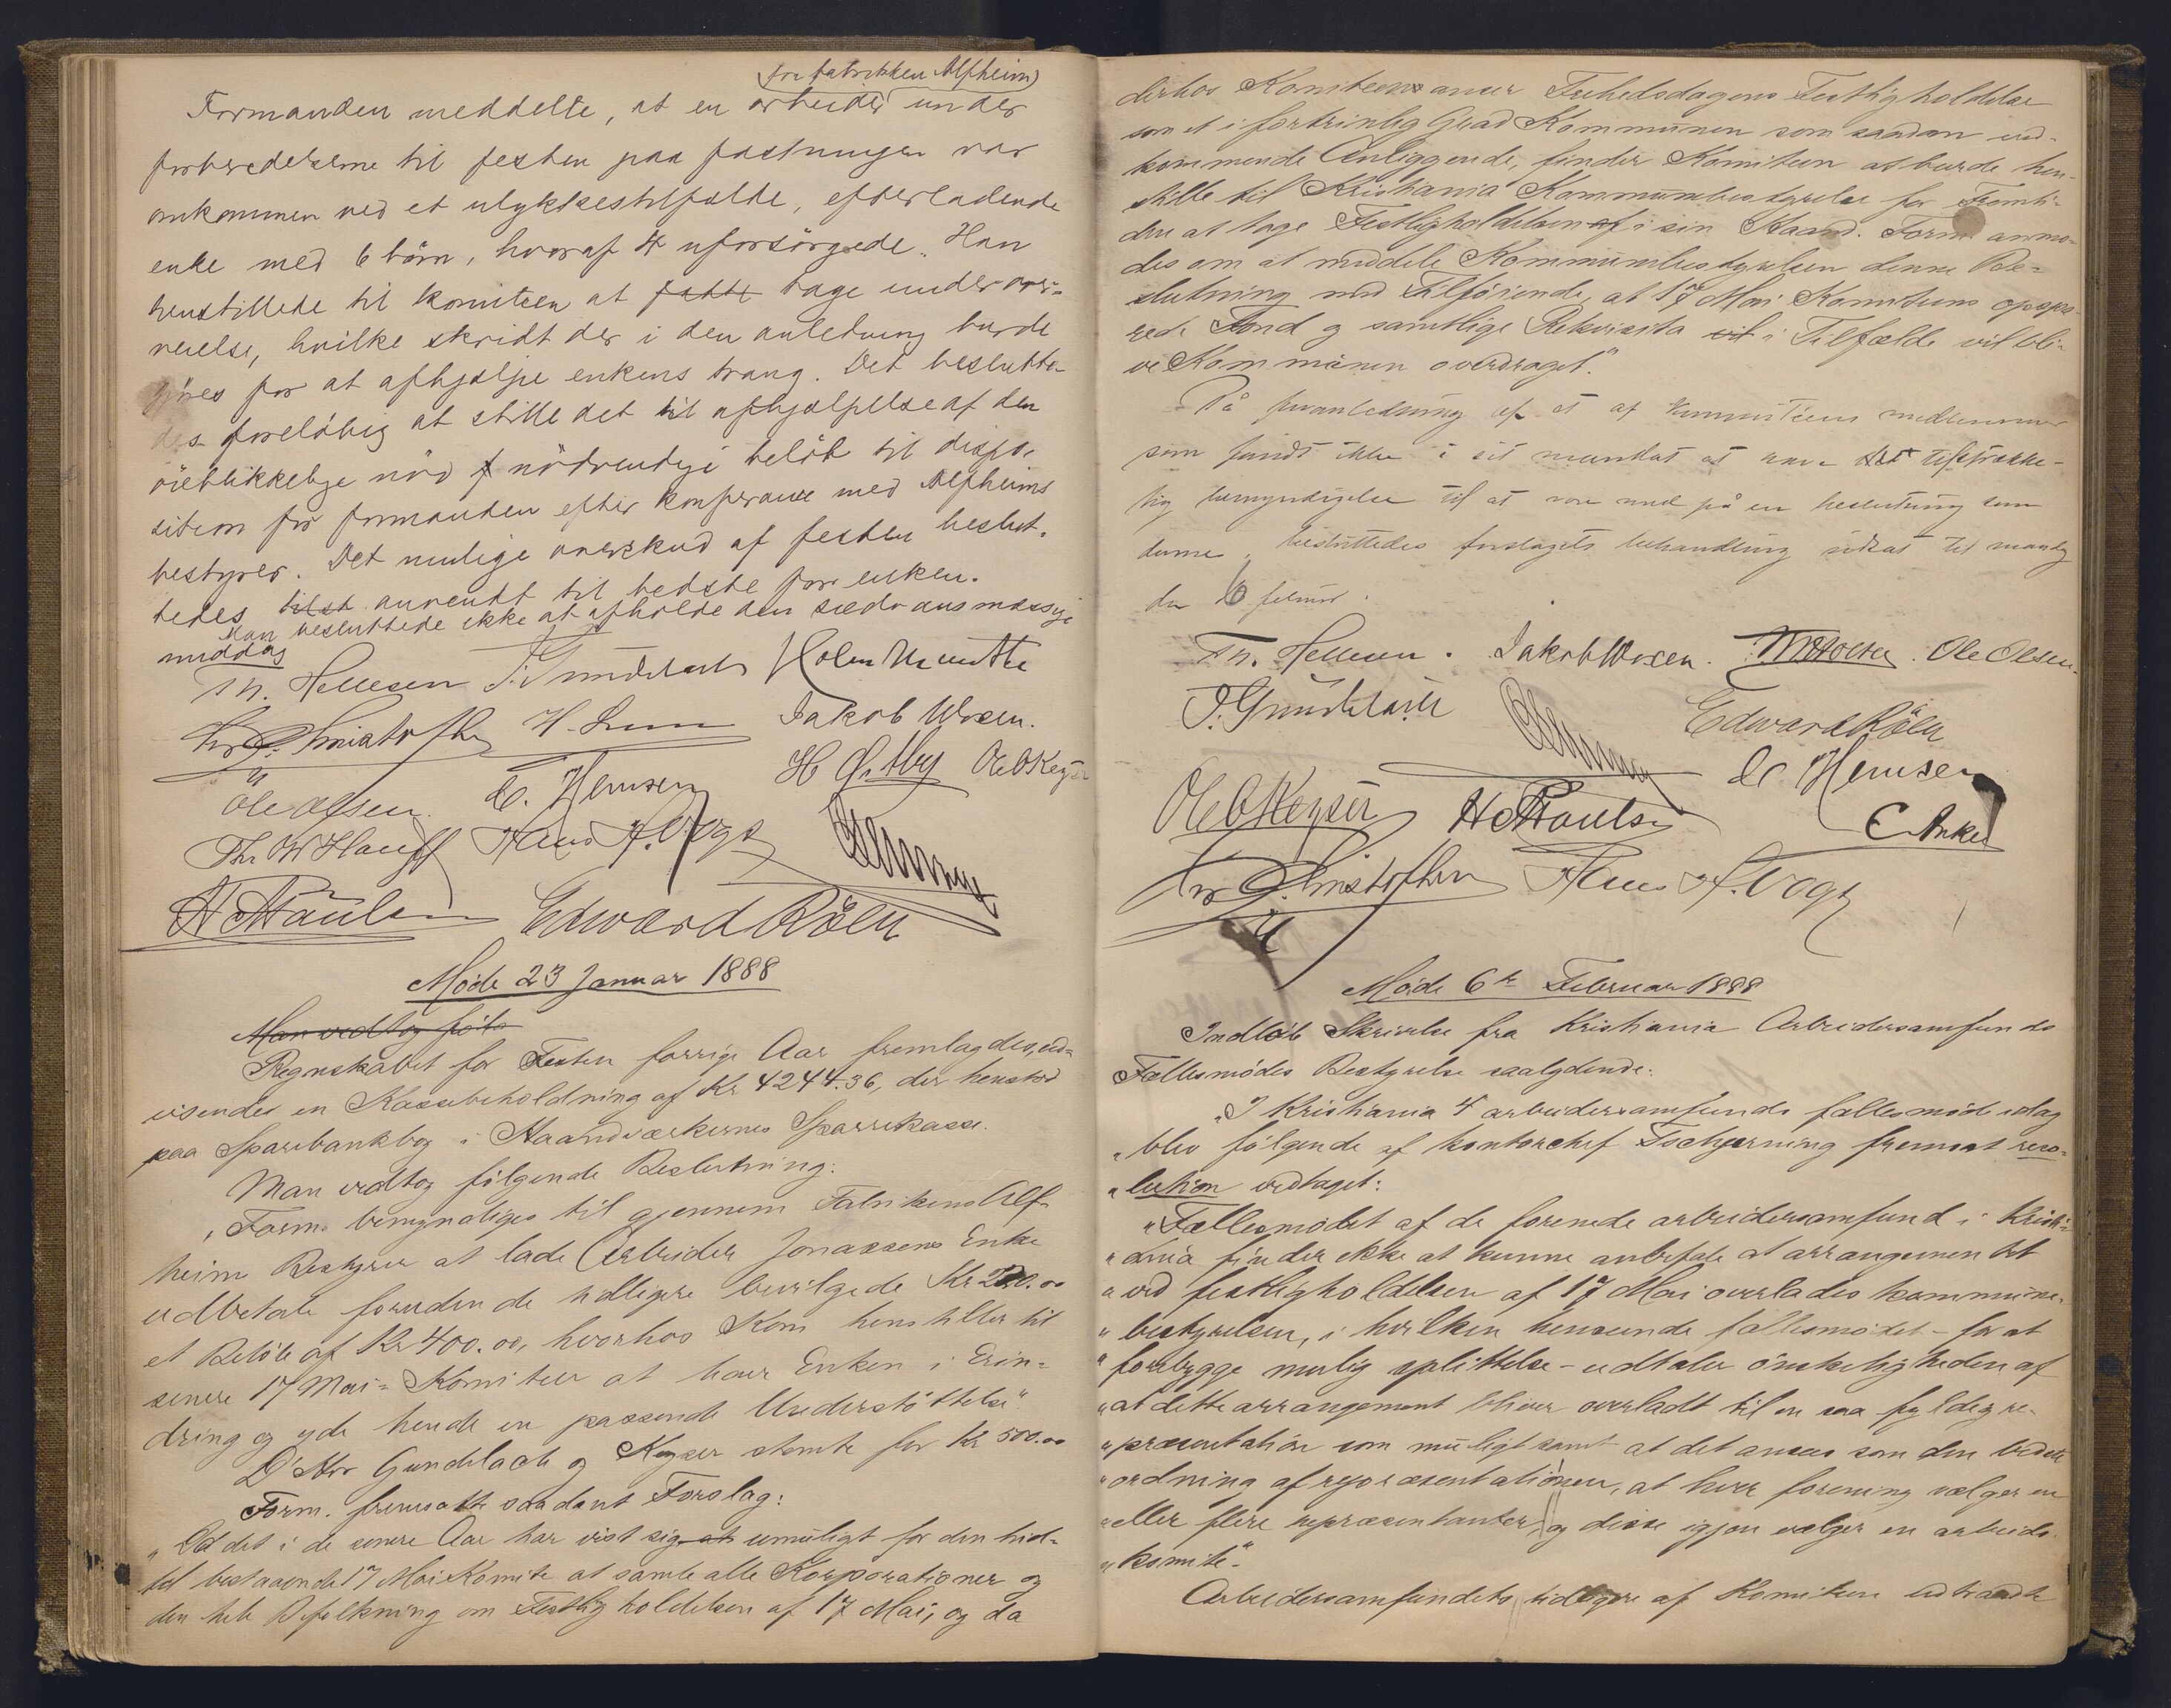 fra fabrikken Alfheim)
Formanden meddelte, at en arbeider under
forberedelserne til festen paa fæstningen var
omkommen ved et ulykkestilfælde, efterladende
enke med 6 børn, hvoraf 4 uforsørgede. Han
henstillede til komiteen at fatte tage under over-
veielse, hvilke skridt der i den anledning burde
gjøres for at afhjælpe enkens trang. Det beslutte-
des foreløbig at stille det til afhjælpelse af den
øieblikkelige nød nødvendige beløb til dispo-
sition for formanden efter konferance med Alfheims
bestyrer. Det mulige overskud af festen beslut-
tedes tilst anvendt til bedste for enken.
Man besluttede ikke at afholde den sædvansmæssige
middag
Th. Hellesen J. Gundelach Holm Munthe
Chr. Christophersen H. Lund Jakob Woxen.
Ole Olsen. C. Hemsen H Østby Ole O Keyser
Thr W Hauff Hans A. Vogt
H Paulsen Edward Röen
Møde 23 Januar 1888
Man vedtog
Regnskabet for Festen forrige Aar fremlagdes, ud-
visendes en Kassebeholdning af Kr 4244.36, der henstod
paa Sparebankbog i Haandværkernes Sparekasse.
Man vedtog følgende Beslutning:
"Form. bemyndiges til gjennem Fabrikens Alf-
heims Bestyrer at lade Arbeider Jonassens Enke
udbetale foruden de tidligere bevilgede Kr 200.00
et Beløb af Kr 400.00, hvorhos Kom henstiller til
senere 17 Mai-Komiteer at have Enken i Erin-
dring og yde hende en passende Understøttelse".
D'Hrr Gundelach og Keyser stemte for Kr 500.00
Form. fremsatte saadant Forslag:
"Da det i de senere Aar har vist sig at umuligt for den hid-
til bestaaende 17 Mai Komite at samle alle Korporationer og
den hele Befolkning om Festligholdelsen af 17 Mai, og da
derhos Komiteen anser Frihedsdagens Festligholdelse
som et i fortrinlig Grad Kommunen som saadan ved-
kommende Anliggende, finder Komiteen at burde hen-
stille til Kristiania Kommunebestyrelse for Fremti-
den at tage Festligholdelsen af i sin Haand. Form anmo-
des om at meddele Kommunebestyrelsen denne Be-
slutning med Tilføiende, at 17 Mai Komiteens opspa-
rede Fond og samtlige Rekvisita vil i Tilfælde vil bli-
ve Kommunen overdraget."
På foranledning af et af kommiteens medlemmer
som fandt ikke i sit mandat at have det tilstrække-
lig bemyndigelse til at være med på en beslutning som
denne, besluttedes forslagets behandling udsat til mandag
den 6 februar.
Th. Hellesen. Jakob Woxen. Ole Olsen.
J. Gundelach Edward Röen
C. Hemsen
Ole O Keyser H Paulsen C Anker
Chr Christophersen Hans A. Vogt
Møde 6te Februar 1888
Indløb Skrivelse fra Kristiania Arbeidersamfunds
Fællesmødes Bestyrelse saalydende:
"I Kristiania 4 arbeidersamfunds fællesmøde idag
"blev følgende af kontorchef Tschjerning fremsat reso-
"lution vedtaget:
"Fællesmødet af de forenede arbeidersamfund i Kristi-
"ania finder ikke at kunne anbefale at arrangementet
"ved festligholdelsen af 17 Mai overlades kommune-
"bestyrelsen, i hvilken henseende fællesmødet – for at
"forebygge mulig splittelse – udtaler ønskeligheden af
"at dette arrangement bliver overladt til en saa fyldig re-
"præsentation som muligt samt at det ansees som den bedste
"ordning af repræsentationen, at hver forening vælger en
"eller flere repræsentanter og disse igjen vælger en arbeids
"komite".
Arbeidersamfundets tidligere af Komiteen udtraadte